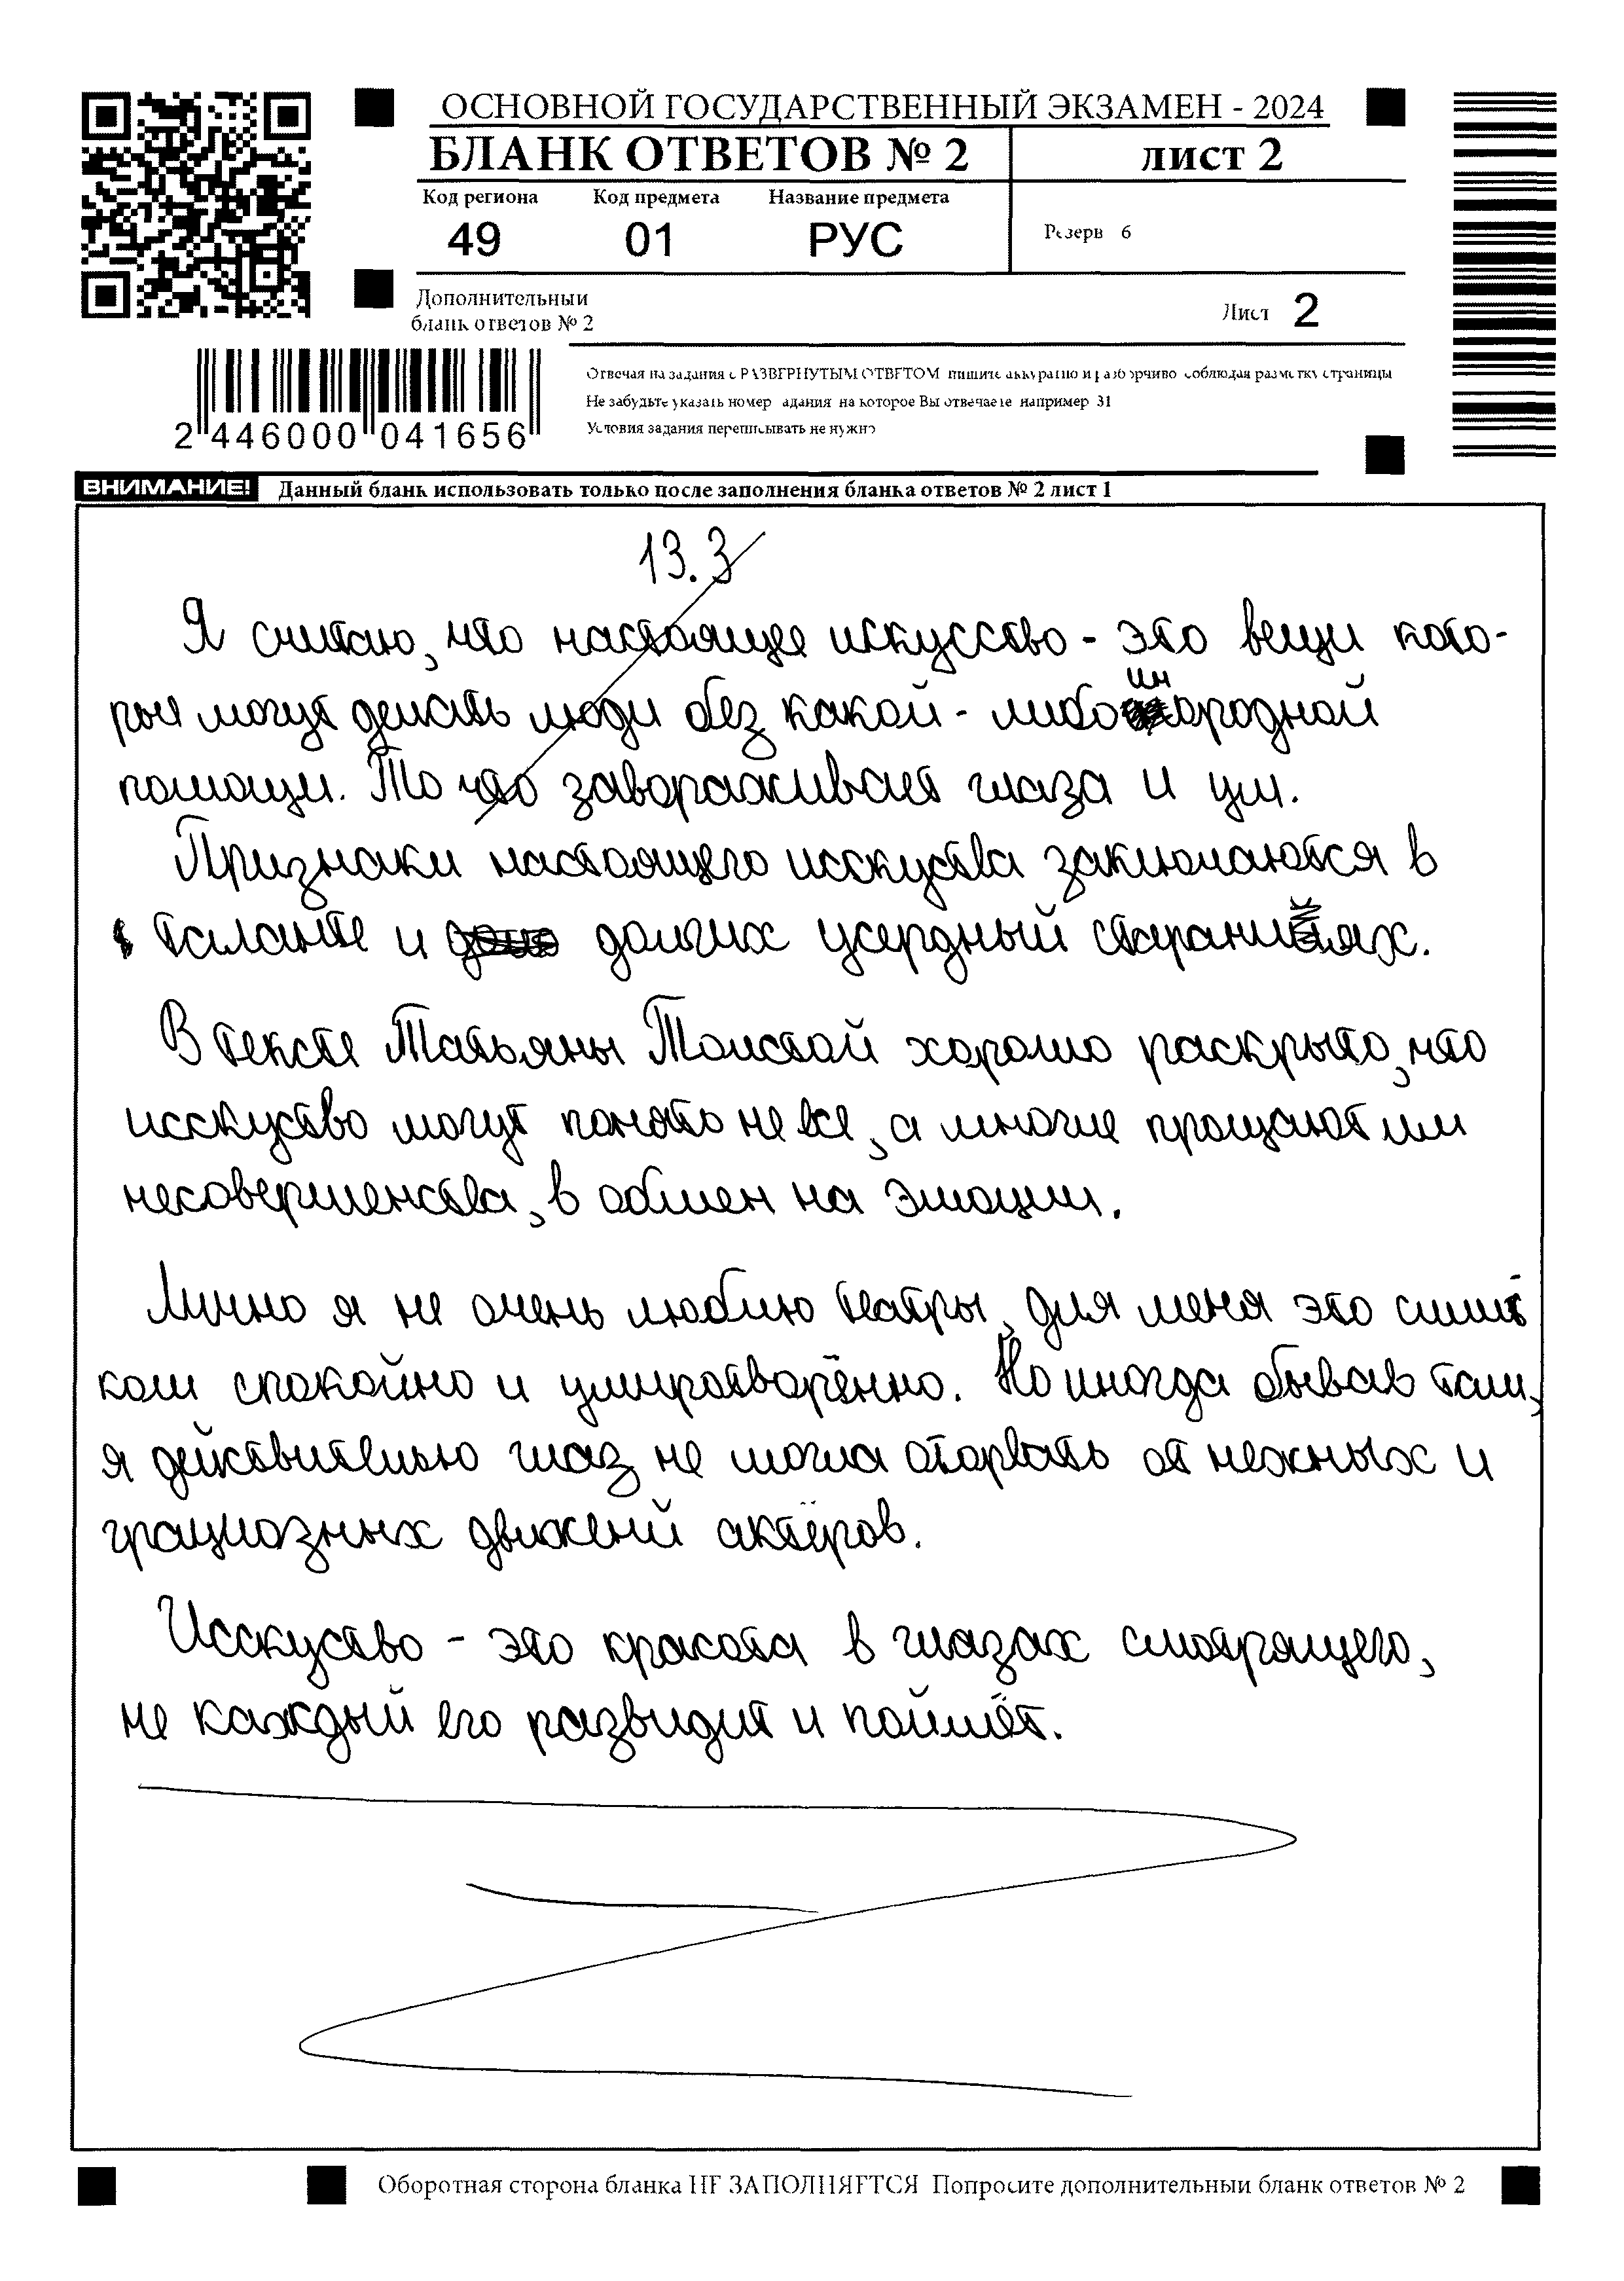 ОСНОВНОЙ ГОСУДАРСТВЕННЫЙ ЭКЗАМЕН - 2024
БЛАНК ОТВЕТОВ № 2 лист 2
Код региона Код предмета Название предмета
49 01 РУС
Резерв 6
Дополнительный
бланк ответов № 2
Лист 2
Отвечая на задания с РАЗВЕРНУТЫМ ОТВЕТОМ пишите аккуратно и разборчиво соблюдая разметку страницы
Не забудьте указать номер задания на которое Вы отвечаете например 31
Условия задания переписывать не нужно
2 446000 041656
ВНИМАНИЕ! Данный бланк использовать только после заполнения бланка ответов № 2 лист 1
13.3
Я считаю, что настоящее искусство - это вещи кото-
рые могут делать люди без какой - либо инородной
помощи. То что завораживает глаза и ум.
Признаки настоящего исскуства заключаются в
таланте и долгих усердный стараниях.
В тексте Татьяны Толстой хорошо раскрыто, что
исскуство могут понять не все, а многие прощают им
несовершенства, в обмен на эмоции.
Лично я не очень люблю театры, для меня это слиш-
ком спокойно и умиротворённо. Но иногда бывав там,
я действительно глаз не могла оторвать от нежных и
грациозных движений актёров.
Исскуство - это красота в глазах смотрящего,
не каждый его развидит и поймёт.
Оборотная сторона бланка НЕ ЗАПОЛНЯЕТСЯ Попросите дополнительный бланк ответов № 2